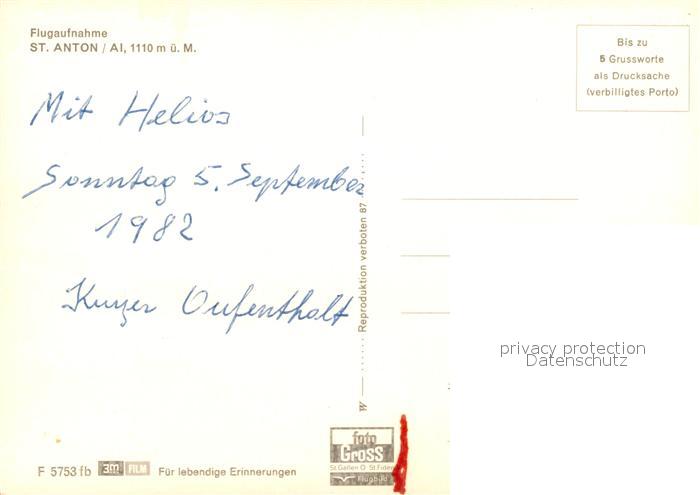 Flugaufnahme
ST. ANTON / AI, 1110 m ü. M.
Bis zu
5 Grussworte
als Drucksache
(verbilligtes Porto)
Mit Helios
Sonntag 5. September
1982
Kurzer Oufenthalt
Reproduktion verboten 87
W
privacy protection
Datenschutz
foto
Gross
St. Gallen O St. Fiden
Flugbild
F 5753 fb 3m FILM Für lebendige Erinnerungen